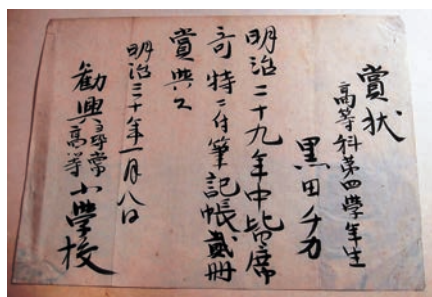 賞状
高等科第四學年生
黒田チカ
明治二十九年中皆席
奇特ニ付筆記帳貳册
賞與ス
明治三十年一月八日
勸興尋常高等小學校